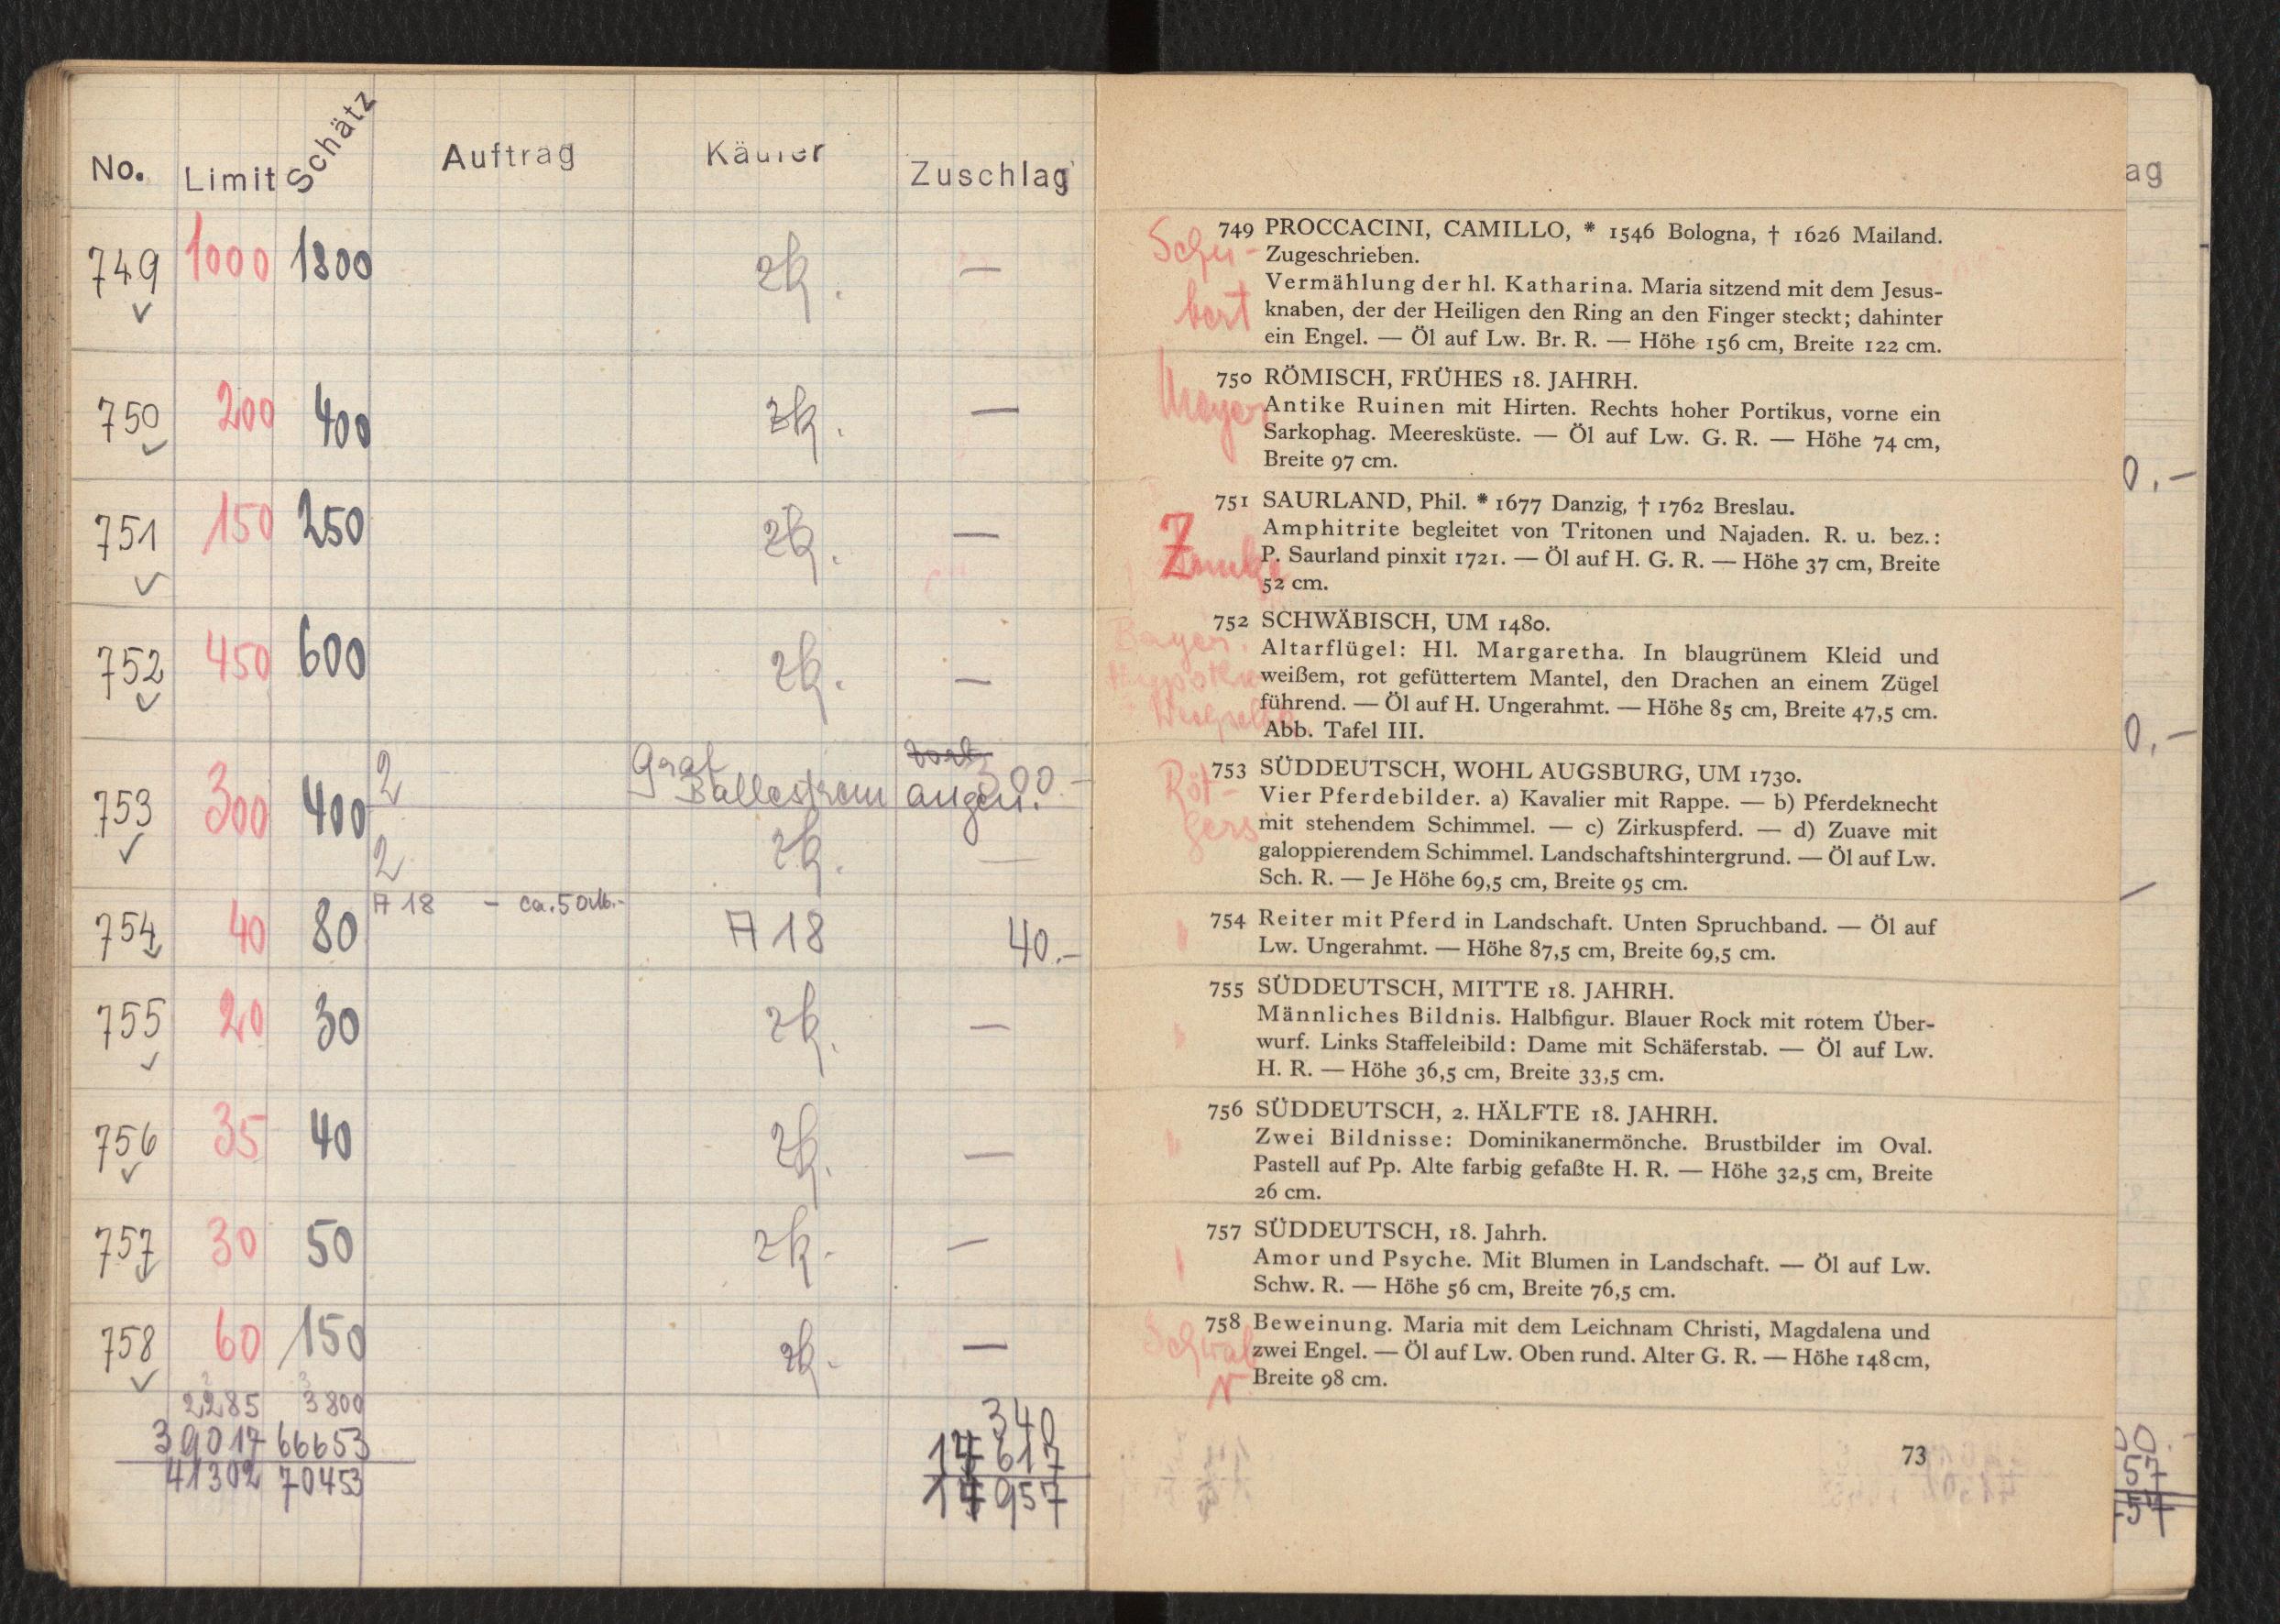 No. Limit Schätz Auftrag Käufer Zuschlag
749 1000 1800 zk. —
750 200 400 zk. —
751 150 250 zk. —
752 450 600 zk. —
753 300 400 2 Graf Ballestrem angen. 300.-
2 zk. —
754 40 80 A 18 - ca. 50 M.- A 18 40.-
755 20 30 zk. —
756 35 40 zk. —
757 30 50 zk. —
758 60 150 zk. —
2285 3800 340
39017 66653 14617
41302 70453 14957
Schu-
bert
749 PROCCACINI, CAMILLO, * 1546 Bologna, † 1626 Mailand.
Zugeschrieben.
Vermählung der hl. Katharina. Maria sitzend mit dem Jesus-
knaben, der der Heiligen den Ring an den Finger steckt; dahinter
ein Engel. — Öl auf Lw. Br. R. — Höhe 156 cm, Breite 122 cm.
Meyer
750 RÖMISCH, FRÜHES 18. JAHRH.
Antike Ruinen mit Hirten. Rechts hoher Portikus, vorne ein
Sarkophag. Meeresküste. — Öl auf Lw. G. R. — Höhe 74 cm,
Breite 97 cm.
751 SAURLAND, Phil. * 1677 Danzig, † 1762 Breslau.
Amphitrite begleitet von Tritonen und Najaden. R. u. bez.:
P. Saurland pinxit 1721. — Öl auf H. G. R. — Höhe 37 cm, Breite
52 cm.
Bayer.
752 SCHWÄBISCH, UM 1480.
Altarflügel: Hl. Margaretha. In blaugrünem Kleid und
weißem, rot gefüttertem Mantel, den Drachen an einem Zügel
führend. — Öl auf H. Ungerahmt. — Höhe 85 cm, Breite 47,5 cm.
Abb. Tafel III.
Röt-
gers
753 SÜDDEUTSCH, WOHL AUGSBURG, UM 1730.
Vier Pferdebilder. a) Kavalier mit Rappe. — b) Pferdeknecht
mit stehendem Schimmel. — c) Zirkuspferd. — d) Zuave mit
galoppierendem Schimmel. Landschaftshintergrund. — Öl auf Lw.
Sch. R. — Je Höhe 69,5 cm, Breite 95 cm.
754 Reiter mit Pferd in Landschaft. Unten Spruchband. — Öl auf
Lw. Ungerahmt. — Höhe 87,5 cm, Breite 69,5 cm.
755 SÜDDEUTSCH, MITTE 18. JAHRH.
Männliches Bildnis. Halbfigur. Blauer Rock mit rotem Über-
wurf. Links Staffeleibild: Dame mit Schäferstab. — Öl auf Lw.
H. R. — Höhe 36,5 cm, Breite 33,5 cm.
756 SÜDDEUTSCH, 2. HÄLFTE 18. JAHRH.
Zwei Bildnisse: Dominikanermönche. Brustbilder im Oval.
Pastell auf Pp. Alte farbig gefaßte H. R. — Höhe 32,5 cm, Breite
26 cm.
757 SÜDDEUTSCH, 18. Jahrh.
Amor und Psyche. Mit Blumen in Landschaft. — Öl auf Lw.
Schw. R. — Höhe 56 cm, Breite 76,5 cm.
758 Beweinung. Maria mit dem Leichnam Christi, Magdalena und
zwei Engel. — Öl auf Lw. Oben rund. Alter G. R. — Höhe 148 cm,
Breite 98 cm.
73
ag
0.-
0.-
57